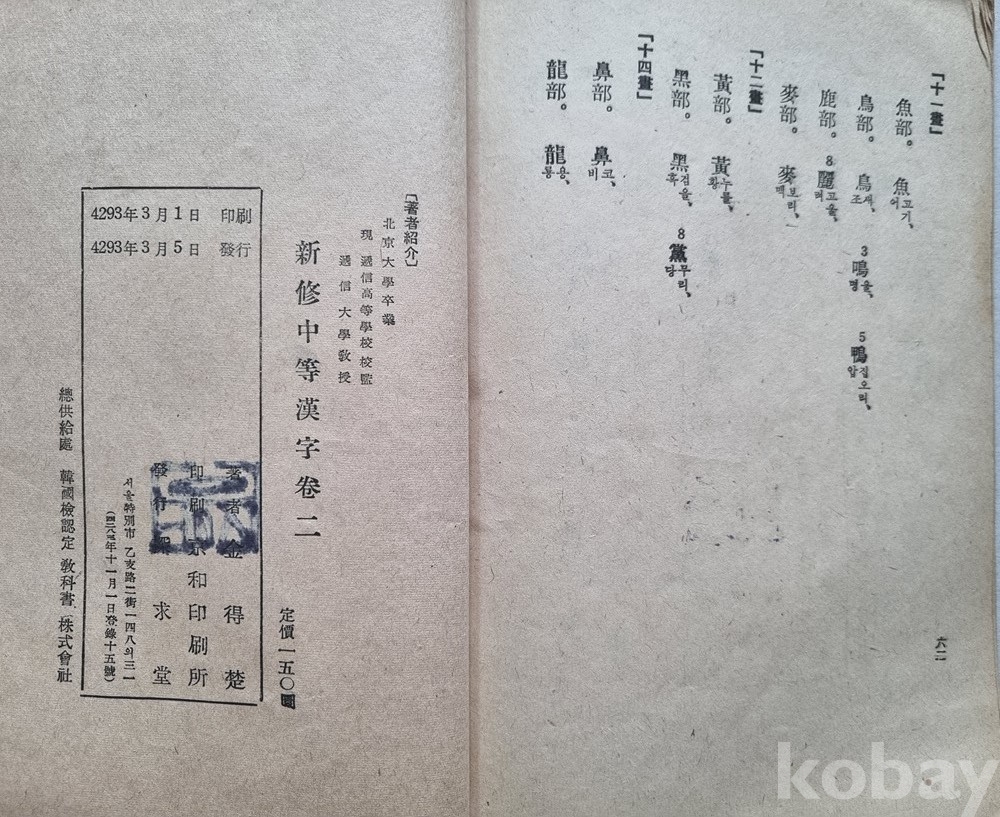 「十一畫」
魚部。 魚 고기、어
鳥部。 鳥 새、조 3 鳴 울、명 5 鴨 집오리、압
鹿部。 8 麗 고울、려
麥部。 麥 보리、맥
「十二畫」
黃部。 黃 누를、황
黑部。 黑 검을、흑 8 黨 무리、당
「十四畫」
鼻部。 鼻 코、비
龍部。 龍 용、룡
六二
[著者紹介]
北京大學卒業
現 遞信高等學校校監
遞信大學敎授
新修中等漢字卷二
定價一五〇圜
4293年3月1日 印刷
4293年3月5日 發行
著者 金得楚
印刷 京和印刷所
發行 求堂
서울特別市 乙支路二街一四八의三一
(四二八四年十一月一日登錄十五號)
總供給處 韓國檢認定敎科書株式會社
kobay